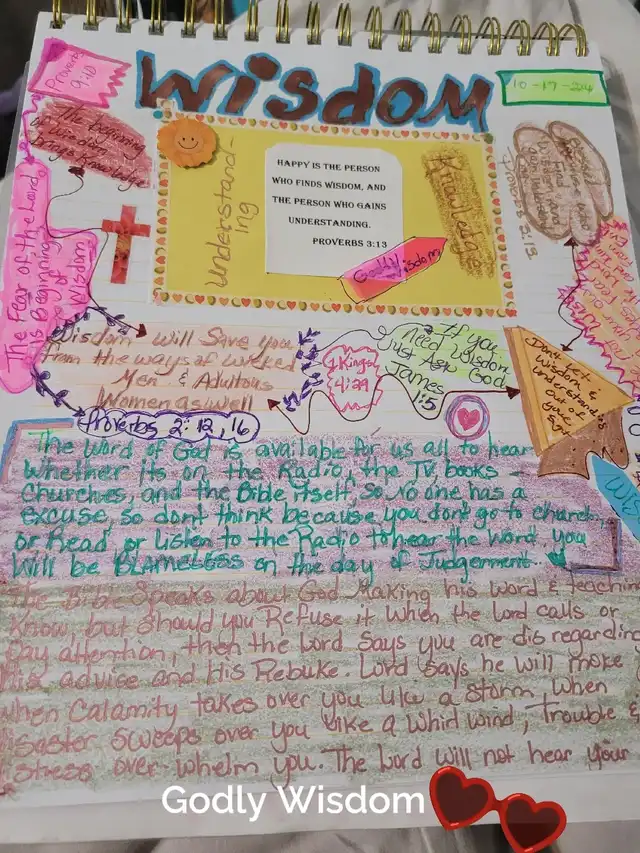 Proverbs
9:10
WISDOM
10-17-24
The beginning
Understand-
ing
HAPPY IS THE PERSON
WHO FINDS WISDOM, AND
THE PERSON WHO GAINS
UNDERSTANDING.
PROVERBS 3:13
Knowledge
Godly Wisdom
The Fear of the Lord
is Beginning
of
Wisdom
Wisdom Will Save you
from the ways of wicked
Men & Adultous
Women as well
Proverbs 2:12,16
1 Kings
4:29
If you
Need Wisdom
Just Ask God
James
1:5
Don't Let
Wisdom &
Understanding
out of
your
The Word of God is available for us all to hear
Whether its on the Radio, the TV, books
Churches, and the Bible itself, so No one has a
excuse, so dont think because you dont go to church
or Read or Listen to the Radio to hear the word you
Will be BLAMELESS on the day of Judgerment.
The Bible Speaks about God Making his Word & teaching
Know, but should you Refuse it when the Lord calls or
pay attention, then the Lord says you are disregarding
His advice and His Rebuke. Lord says he will moke
when Calamity takes over you like a storm when
saster sweeps over you like a Whirl wind, Trouble &
stress over whelm you. The Lord will not hear your
Godly Wisdom